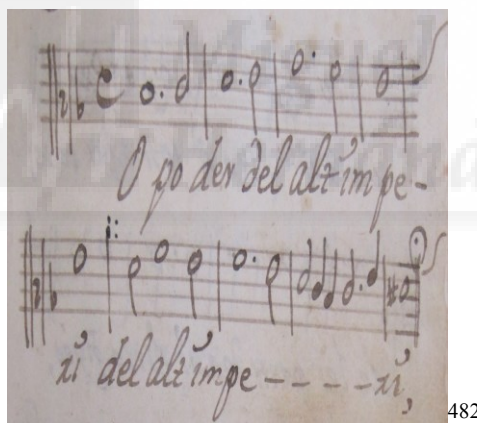 O po der del alt im pe-
ri del alt impe - - - - - ri,
482